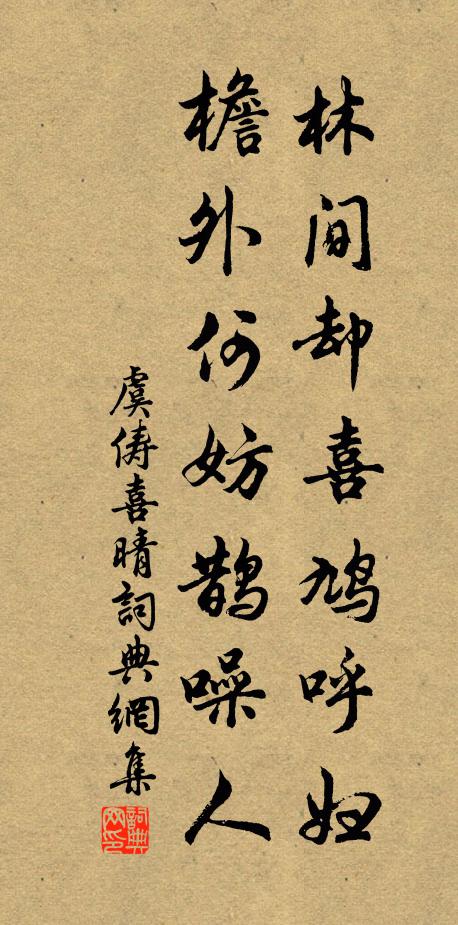 林间却喜鸠呼妇
檐外何妨鹊噪人
虞俦喜晴詞典網集
詞典网印